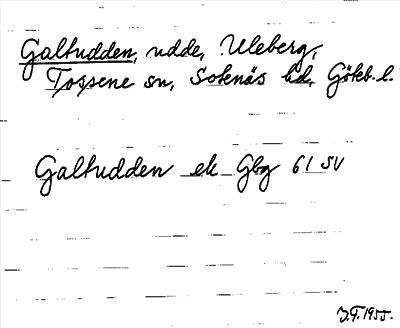 Galtudden, udde, Uleberg,
Tossene sn, Sotenäs hd, Göteb. l.
Galtudden ek Gbg 61 SV
J.F. 1955.